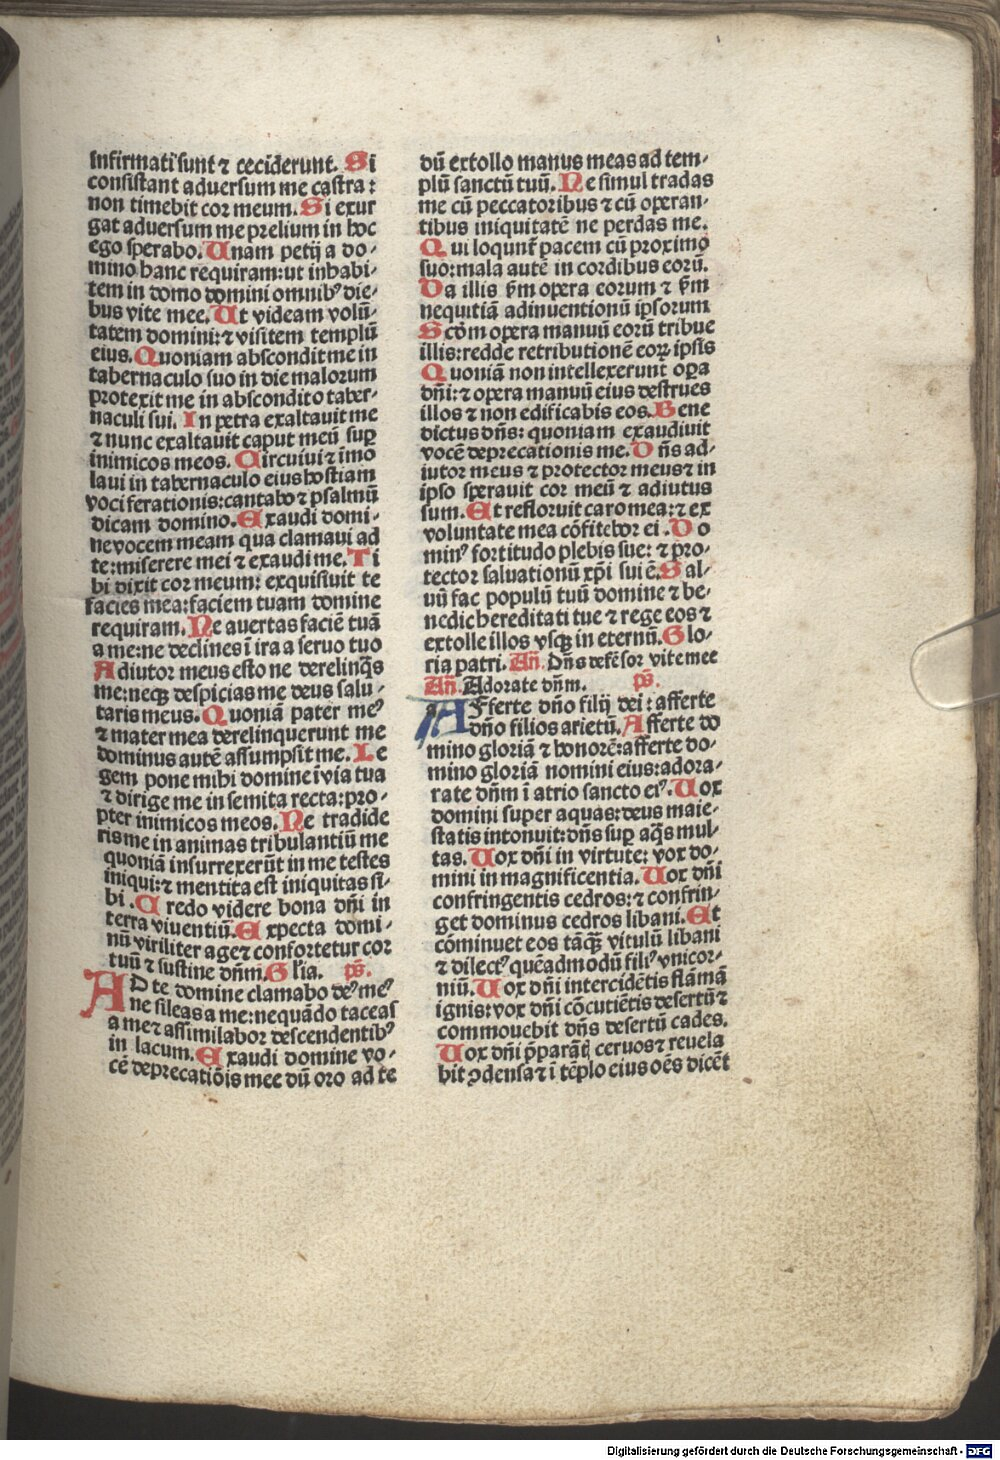 infirmati sunt ⁊ ceciderunt. Si
consistant aduersum me castra:
non timebit cor meum. Si exur
gat aduersum me prelium in hoc
ego sperabo. Unam petij a do-
mino hanc requiram: ut inhabi-
tem in domo domini omnibꝰ die-
bus vite mee. Ut videam volū-
tatem domini: ⁊ visitem templū
eius. Quoniam abscondit me in
tabernaculo suo in die malorum
protexit me in abscondito taber-
naculi sui. In petra exaltauit me
⁊ nunc exaltauit caput meū suꝑ
inimicos meos. Circuiui ⁊ īmo
laui in tabernaculo eius hostiam
vociferationis: cantabo ⁊ psalmū
dicam domino. Exaudi domi-
ne vocem meam qua clamaui ad
te: miserere mei ⁊ exaudi me. Ti
bi dixit cor meum: exquisiuit te
facies mea: faciem tuam domine
requiram. Ne auertas faciē tuā
a me: ne declines ī ira a seruo tuo
Adiutor meus esto ne derelinq̄s
me: neqꝫ despicias me deus salu-
taris meus. Quoniā pater meꝰ
⁊ mater mea derelinquerunt me
dominus autē assumpsit me. Le
gem pone mihi domine ī via tua
⁊ dirige me in semita recta: pro-
pter inimicos meos. Ne tradide
ris me in animas tribulantiū me
quoniā insurrexerūt in me testes
iniqui: ⁊ mentita est iniquitas si-
bi. Credo videre bona dn̄i in
terra viuentiū. Expecta domi-
nū viriliter age ⁊ confortetur cor
tuū ⁊ sustine dn̄m. Gl'ia. ps̄.
AD te domine clamabo deꝰ meꝰ
ne sileas a me: nequādo taceas
a me ⁊ assimilabor descendentibꝰ
in lacum. Exaudi domine vo-
cē deprecatiōis mee dū oro ad te
dū extollo manus meas ad tem-
plū sanctū tuū. Ne simul tradas
me cū peccatoribus ⁊ cū operan-
tibus iniquitatē ne perdas me.
Qui loqunt̄ pacem cū proximo
suo: mala autē in cordibus eorū.
Da illis ẜm opera eorum ⁊ ẜm
nequitiā adinuentionū ipsorum
Scd̄m opera manuū eorū tribue
illis: redde retributionē eoꝝ ipsis
Quoniā non intellexerunt oꝑa
dn̄i: ⁊ opera manuū eius destrues
illos ⁊ non edificabis eos. Bene
dictus dn̄s: quoniam exaudiuit
vocē deprecationis me. Dn̄s ad-
iutor meus ⁊ protector meus ⁊ in
ipso sperauit cor meū ⁊ adiutus
sum. Et refloruit caro mea: ⁊ ex
voluntate mea cōfitebor ei. Do
minꝰ fortitudo plebis sue: ⁊ pro-
tector saluationū xp̄i sui ē. Sal-
uū fac populū tuū domine ⁊ be-
nedic hereditati tue ⁊ rege eos ⁊
extolle illos vsqꝫ in eternū. Glo-
ria patri. Añ. Dn̄s defēsor vite mee
Añ. Adorate dn̄m. ps̄.
AFferte dn̄o filij dei: afferte
dn̄o filios arietū. Afferte do
mino gloriā ⁊ honorē: afferte do-
mino gloriā nomini eius: adora-
rate dn̄m ī atrio sancto eiꝰ. Uox
domini super aquas: deus maie-
statis intonuit: dn̄s suꝑ aq̄s mul-
tas. Uox dn̄i in virtute: vox do-
mini in magnificentia. Uox dn̄i
confringentis cedros: ⁊ confrin-
get dominus cedros libani. Et
cōminuet eos tāqꝫ vitulū libani
⁊ dilectꝰ quēadmodū filiꝰ vnicor-
niū. Uox dn̄i intercidētis flāmā
ignis: vox dn̄i cōcutiētis desertū ⁊
commouebit dn̄s desertū cades.
Uox dn̄i p̄parāt̄ ceruos ⁊ reuela
bit ꝯdensa ⁊ ī tēplo eius oēs dicēt
Digitalisierung gefördert durch die Deutsche Forschungsgemeinschaft - DFG